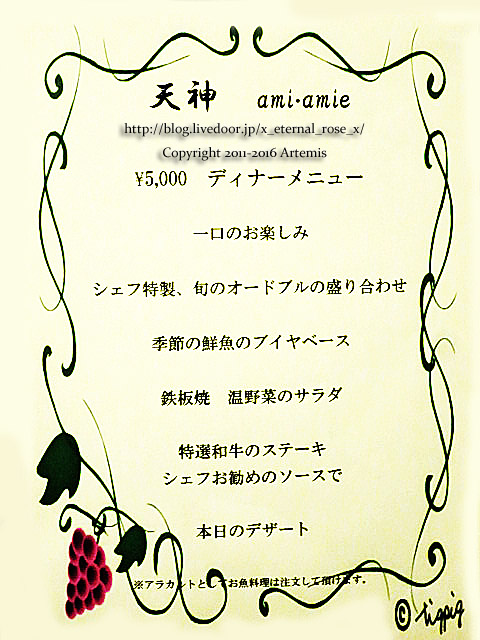 天神 ami・amie
http://blog.livedoor.jp/x_eternal_rose_x/
Copyright 2011-2016 Artemis
¥5,000 ディナーメニュー
一口のお楽しみ
シェフ特製、旬のオードブルの盛り合わせ
季節の鮮魚のブイヤベース
鉄板焼 温野菜のサラダ
特選和牛のステーキ
シェフお勧めのソースで
本日のデザート
※アラカルトとしてお魚料理は注文して頂けます。
© tigpig